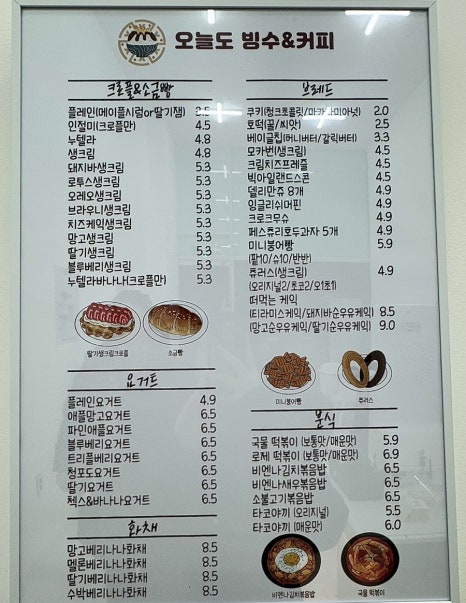 오늘도 빙수&커피
크로플&소금빵
플레인(메이플시럽or딸기잼) 3.5
인절미(크로플만) 4.5
누텔라 4.8
생크림 4.8
돼지바생크림 5.3
로투스생크림 5.3
오레오생크림 5.3
브라우니생크림 5.3
치즈케익생크림 5.3
망고생크림 5.3
딸기생크림 5.3
블루베리생크림 5.3
누텔라바나나(크로플만) 5.3
딸기생크림크로플
소금빵
요거트
플레인요거트 4.9
애플망고요거트 6.5
파인애플요거트 6.5
블루베리요거트 6.5
트리플베리요거트 6.5
청포도요거트 6.5
딸기요거트 6.5
첵스&바나나요거트 6.5
화채
망고베리나나화채 8.5
멜론베리나나화채 8.5
딸기베리나나화채 8.5
수박베리나나화채 8.5
브레드
쿠키(청크초콜릿/마카다미아넛) 2.0
호떡(꿀/씨앗) 2.5
베이글칩(허니버터/갈릭버터) 3.3
모카번(생크림) 4.5
크림치즈프레즐 4.5
빅아일랜드스콘 4.5
델리만쥬 8개 4.9
잉글리쉬머핀 4.9
크로크무슈 4.9
페스츄리호두과자 5개 4.9
미니붕어빵 5.9
(팥10/슈10/반반)
츄러스(생크림) 4.9
(오리지널2/초코2/오1초1)
떠먹는 케익
(티라미스케익/돼지바순우유케익) 8.5
(망고순우유케익/딸기순우유케익) 9.0
미니붕어빵
츄러스
분식
국물 떡볶이 (보통맛/매운맛) 5.9
로제 떡볶이 (보통맛/매운맛) 6.9
비엔나김치볶음밥 6.5
비엔나새우볶음밥 6.5
소불고기볶음밥 6.5
타코야끼 (오리지널) 5.5
타코야끼 (매운맛) 6.0
비엔나김치볶음밥
국물 떡볶이